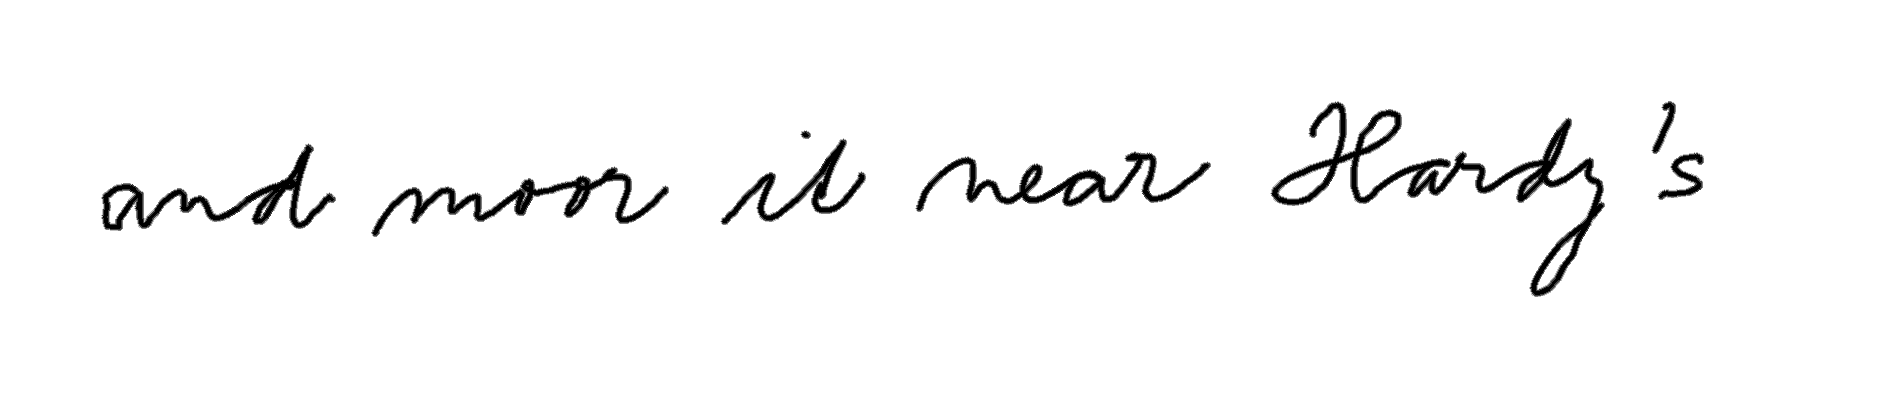 and moor it near Hardy's